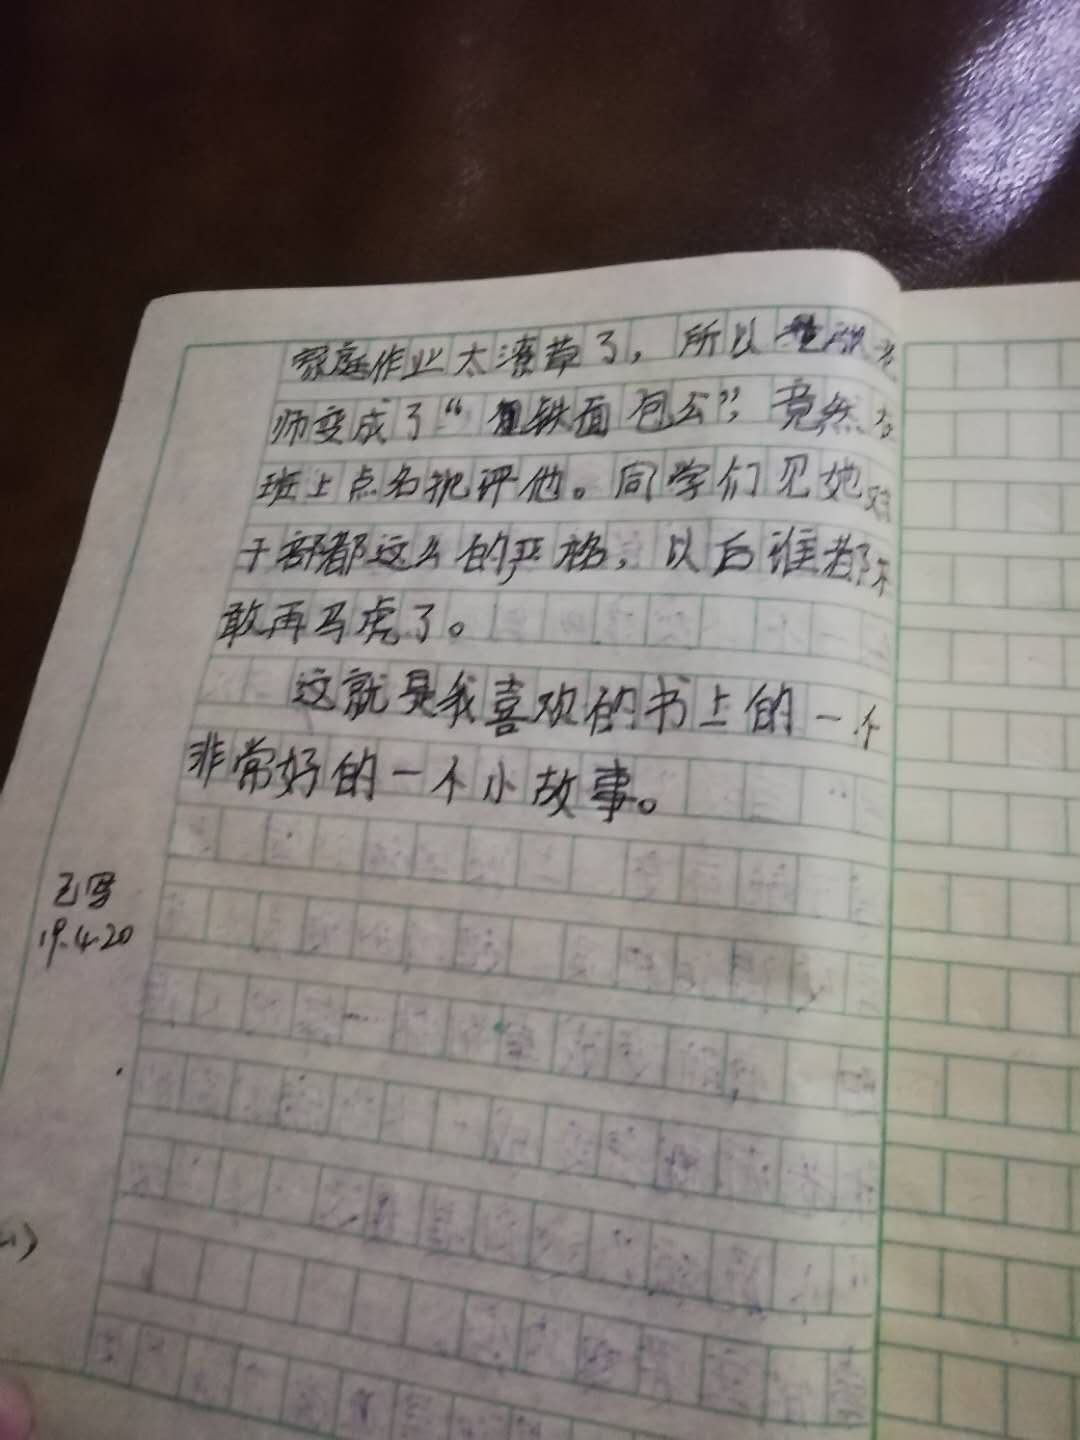 家庭作业太潦草了，所以老
师变成了“铁面包公”，竟然在
班上点名批评他。同学们见她对
干部都这么的严格，以后谁都不
敢再马虎了。
这就是我喜欢的书上的一个
非常好的一个小故事。
已写
19.4.20